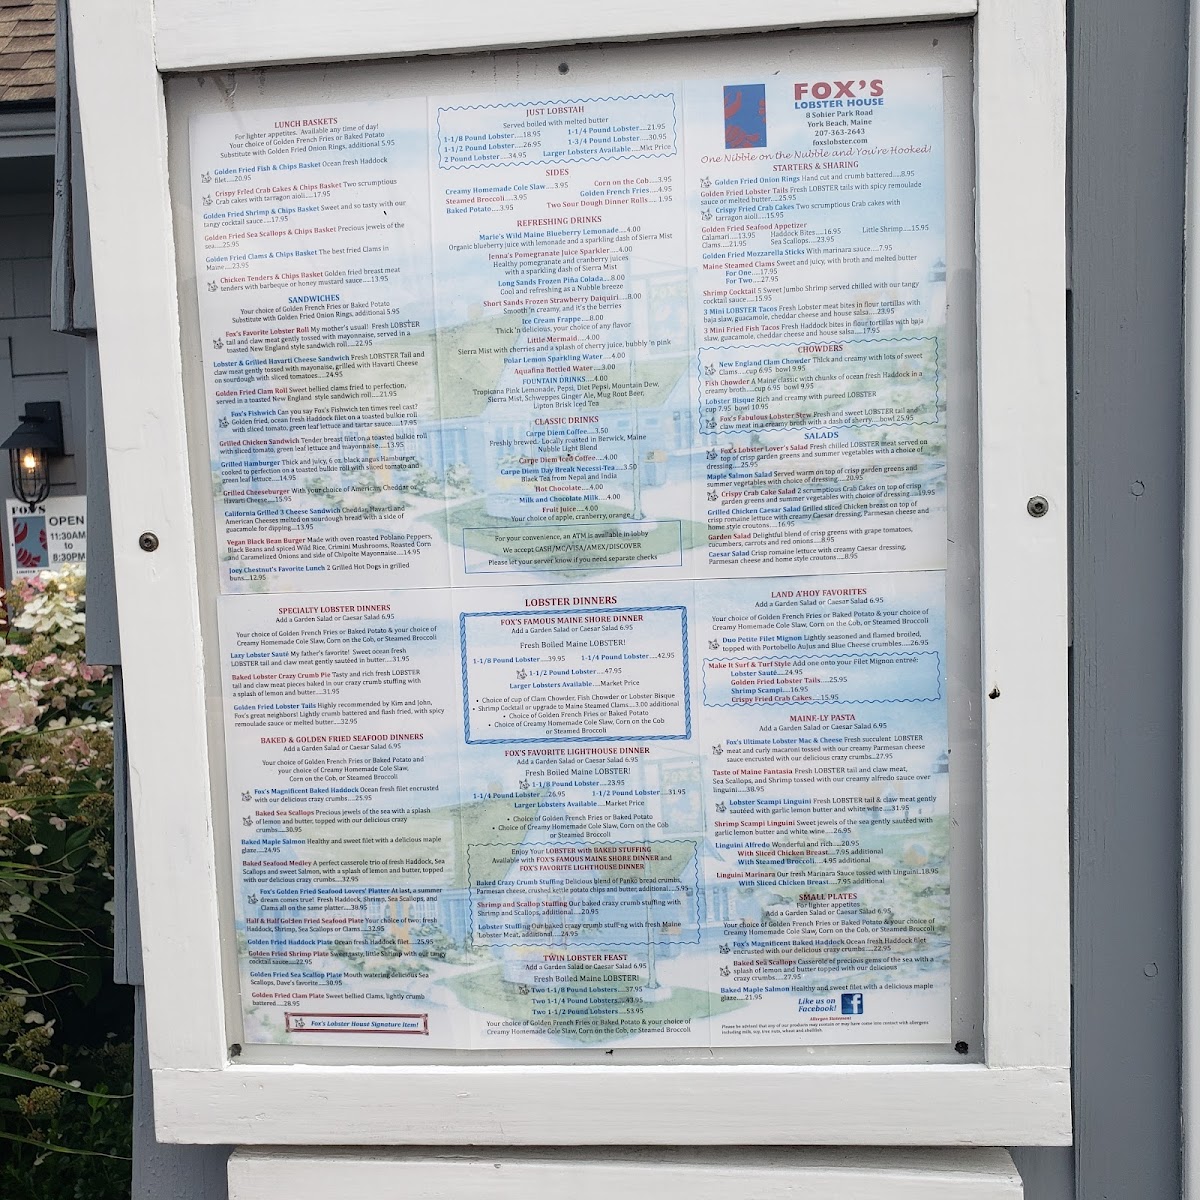 FOX'S
LOBSTER
OPEN
11:30AM
to
8:30PM
LUNCH BASKETS
For lighter appetites. Available any time of day!
Your choice of Golden French Fries or Baked Potato
Substitute with Golden Fried Onion Rings, additional 5.95
Golden Fried Fish & Chips Basket Ocean fresh Haddock
filet....20.95
Crispy Fried Crab Cakes & Chips Basket Two scrumptious
Crab cakes with tarragon aioli....17.95
Golden Fried Shrimp & Chips Basket Sweet and so tasty with our
tangy cocktail sauce....17.95
Golden Fried Sea Scallops & Chips Basket Precious jewels of the
sea....25.95
Golden Fried Clams & Chips Basket The best fried Clams in
Maine....23.95
Chicken Tenders & Chips Basket Golden fried breast meat
tenders with barbeque or honey mustard sauce....13.95
SANDWICHES
Your choice of Golden French Fries or Baked Potato
Substitute with Golden Fried Onion Rings, additional 5.95
Fox's Favorite Lobster Roll My mother's usual! Fresh LOBSTER
tail and claw meat gently tossed with mayonnaise, served in a
toasted New England style sandwich roll....22.95
Lobster & Grilled Havarti Cheese Sandwich Fresh LOBSTER Tail and
claw meat gently tossed with mayonaise, grilled with Havarti Cheese
on sourdough with sliced tomatoes....24.95
Golden Fried Clam Roll Sweet bellied clams fried to perfection,
served in a toasted New England style sandwich roll....21.95
Fox's Fishwich Can you say Fox's Fishwich ten times reel cast?
Golden fried, ocean fresh Haddock filet on a toasted bulkie roll
with sliced tomato, green leaf lettuce and tartar sauce....17.95
Grilled Chicken Sandwich Tender breast filet on a toasted bulkie roll
with sliced tomato, green leaf lettuce and mayonnaise....13.95
Grilled Hamburger Thick and juicy, 6 oz. black angus Hamburger
cooked to perfection on a toasted bulkie roll with sliced tomato and
green leaf lettuce....14.95
Grilled Cheeseburger With your choice of American, Cheddar or
Havarti Cheese....15.95
California Grilled 3 Cheese Sandwich Cheddar, Havarti and
American Cheeses melted on sourdough bread with a side of
guacamole for dipping....13.95
Vegan Black Bean Burger Made with oven roasted Poblano Peppers,
Black Beans and spiced Wild Rice, Crimini Mushrooms, Roasted Corn
and Caramelized Onions and side of Chipolte Mayonnaise....14.95
Joey Chestnut's Favorite Lunch 2 Grilled Hot Dogs in grilled
buns....12.95
JUST LOBSTAH
Served boiled with melted butter
1-1/8 Pound Lobster....18.95 1-1/4 Pound Lobster....21.95
1-1/2 Pound Lobster....26.95 1-3/4 Pound Lobster....30.95
2 Pound Lobster....34.95 Larger Lobsters Available....Mkt Price
SIDES
Creamy Homemade Cole Slaw....3.95 Corn on the Cob....3.95
Steamed Broccoli....3.95 Golden French Fries....4.95
Baked Potato....3.95 Two Sour Dough Dinner Rolls.... 1.95
REFRESHING DRINKS
Marie's Wild Maine Blueberry Lemonade....4.00
Organic blueberry juice with lemonade and a sparkling dash of Sierra Mist
Jenna's Pomegranate Juice Sparkler....4.00
Healthy pomegranate and cranberry juices
with a sparkling dash of Sierra Mist
Long Sands Frozen Piña Colada....8.00
Cool and refreshing as a Nubble breeze
Short Sands Frozen Strawberry Daiquiri....8.00
Smooth 'n creamy, and it's the berries
Ice Cream Frappe....8.00
Thick 'n delicious, your choice of any flavor
Little Mermaid....4.00
Sierra Mist with cherries and a splash of cherry juice, bubbly 'n pink
Polar Lemon Sparkling Water....4.00
Aquafina Bottled Water....3.00
FOUNTAIN DRINKS....4.00
Tropicana Pink Lemonade, Pepsi, Diet Pepsi, Mountain Dew,
Sierra Mist, Schweppes Ginger Ale, Mug Root Beer,
Lipton Brisk Iced Tea
CLASSIC DRINKS
Carpe Diem Coffee....3.50
Freshly brewed.- Locally roasted in Berwick, Maine
Nubble Light Blend
Carpe Diem Iced Coffee....4.00
Carpe Diem Day Break Necessi-Tea....3.50
Black Tea from Nepal and India
Hot Chocolate....4.00
Milk and Chocolate Milk....4.00
Fruit Juice....4.00
Your choice of apple, cranberry, orange
For your convenience, an ATM is available in lobby
We accept CASH/MC/VISA/AMEX/DISCOVER
Please let your server know if you need separate checks
FOX'S
LOBSTER HOUSE
8 Sohier Park Road
York Beach, Maine
207-363-2643
foxslobster.com
One Nibble on the Nubble and You're Hooked!
STARTERS & SHARING
Golden Fried Onion Rings Hand cut and crumb battered....8.95
Golden Fried Lobster Tails Fresh LOBSTER tails with spicy remoulade
sauce or melted butter....25.95
Crispy Fried Crab Cakes Two scrumptious Crab cakes with
tarragon aioli....15.95
Golden Fried Seafood Appetizer
Calamari....13.95 Haddock Bites....16.95 Little Shrimp....15.95
Clams....21.95 Sea Scallops....23.95
Golden Fried Mozzarella Sticks With marinara sauce....7.95
Maine Steamed Clams Sweet and juicy, with broth and melted butter
For One....17.95
For Two....27.95
Shrimp Cocktail 5 Sweet Jumbo Shrimp served chilled with our tangy
cocktail sauce....15.95
3 Mini LOBSTER Tacos Fresh Lobster meat bites in flour tortillas with
baja slaw, guacamole, cheddar cheese and house salsa....23.95
3 Mini Fried Fish Tacos Fresh Haddock bites in flour tortillas with baja
slaw, guacamole, cheddar cheese and house salsa....17.95
CHOWDERS
New England Clam Chowder Thick and creamy with lots of sweet
Clams....cup 6.95 bowl 9.95
Fish Chowder A Maine classic with chunks of ocean fresh Haddock in a
creamy broth....cup 6.95 bowl 9.95
Lobster Bisque Rich and creamy with pureed LOBSTER
cup 7.95 bowl 10.95
Fox's Fabulous Lobster Stew Fresh and sweet LOBSTER tail and
claw meat in a creamy broth with a dash of sherry....bowl 25.95
SALADS
Fox's Lobster Lover's Salad Fresh chilled LOBSTER meat served on
top of crisp garden greens and summer vegetables with a choice of
dressing....25.95
Maple Salmon Salad Served warm on top of crisp garden greens and
summer vegetables with choice of dressing....20.95
Crispy Crab Cake Salad 2 scrumptious Crab Cakes on top of crisp
garden greens and summer vegetables with choice of dressing....19.95
Grilled Chicken Caesar Salad Grilled sliced Chicken breast on top of
crisp romaine lettuce with creamy Caesar dressing, Parmesan cheese and
home style croutons....16.95
Garden Salad Delightful blend of crisp greens with grape tomatoes,
cucumbers, carrots and red onions....8.95
Caesar Salad Crisp romaine lettuce with creamy Caesar dressing,
Parmesan cheese and home style croutons....8.95
SPECIALTY LOBSTER DINNERS
Add a Garden Salad or Caesar Salad 6.95
Your choice of Golden French Fries or Baked Potato & your choice of
Creamy Homemade Cole Slaw, Corn on the Cob, or Steamed Broccoli
Lazy Lobster Sauté My father's favorite! Sweet ocean fresh
LOBSTER tail and claw meat gently sautéed in butter....31.95
Baked Lobster Crazy Crumb Pie Tasty and rich fresh LOBSTER
tail and claw meat pieces baked in our crazy crumb stuffing with
a splash of lemon and butter....31.95
Golden Fried Lobster Tails Highly recommended by Kim and John,
Fox's great neighbors! Lightly crumb battered and flash fried, with spicy
remoulade sauce or melted butter....32.95
BAKED & GOLDEN FRIED SEAFOOD DINNERS
Add a Garden Salad or Caesar Salad 6.95
Your choice of Golden French Fries or Baked Potato and
your choice of Creamy Homemade Cole Slaw,
Corn on the Cob, or Steamed Broccoli
Fox's Magnificent Baked Haddock Ocean fresh filet encrusted
with our delicious crazy crumbs....25.95
Baked Sea Scallops Precious jewels of the sea with a splash
of lemon and butter, topped with our delicious crazy
crumbs....30.95
Baked Maple Salmon Healthy and sweet filet with a delicious maple
glaze....24.95
Baked Seafood Medley A perfect casserole trio of fresh Haddock, Sea
Scallops and sweet Salmon, with a splash of lemon and butter, topped
with our delicious crazy crumbs....32.95
Fox's Golden Fried Seafood Lovers' Platter At last, a summer
dream comes true! Fresh Haddock, Shrimp, Sea Scallops, and
Clams all on the same platter....38.95
Half & Half Golden Fried Seafood Plate Your choice of two: fresh
Haddock, Shrimp, Sea Scallops or Clams....32.95
Golden Fried Haddock Plate Ocean fresh Haddock filet....25.95
Golden Fried Shrimp Plate Sweet tasty, little Shrimp with our tangy
cocktail sauce....22.95
Golden Fried Sea Scallop Plate Mouth watering delicious Sea
Scallops, Dave's favorite....30.95
Golden Fried Clam Plate Sweet bellied Clams, lightly crumb
battered....28.95
Fox's Lobster House Signature Item!
LOBSTER DINNERS
FOX'S FAMOUS MAINE SHORE DINNER
Add a Garden Salad or Caesar Salad 6.95
Fresh Boiled Maine LOBSTER!
1-1/8 Pound Lobster....39.95 1-1/4 Pound Lobster....42.95
1-1/2 Pound Lobster....47.95
Larger Lobsters Available....Market Price
• Choice of cup of Clam Chowder, Fish Chowder or Lobster Bisque
• Shrimp Cocktail or upgrade to Maine Steamed Clams....3.00 additional
• Choice of Golden French Fries or Baked Potato
• Choice of Creamy Homemade Cole Slaw, Corn on the Cob
or Steamed Broccoli
FOX'S FAVORITE LIGHTHOUSE DINNER
Add a Garden Salad or Caesar Salad 6.95
Fresh Boiled Maine LOBSTER!
1-1/8 Pound Lobster....23.95
1-1/4 Pound Lobster....26.95 1-1/2 Pound Lobster....31.95
Larger Lobsters Available....Market Price
• Choice of Golden French Fries or Baked Potato
• Choice of Creamy Homemade Cole Slaw, Corn on the Cob
or Steamed Broccoli
Enjoy Your LOBSTER with BAKED STUFFING
Available with FOX'S FAMOUS MAINE SHORE DINNER and
FOX'S FAVORITE LIGHTHOUSE DINNER
Baked Crazy Crumb Stuffing Delicious blend of Panko bread crumbs,
Parmesan cheese, crushed kettle potato chips and butter, additional....5.95
Shrimp and Scallop Stuffing Our baked crazy crumb stuffing with
Shrimp and Scallops, additional....20.95
Lobster Stuffing Our baked crazy crumb stuffing with fresh Maine
Lobster Meat, additional....24.95
TWIN LOBSTER FEAST
Add a Garden Salad or Caesar Salad 6.95
Fresh Boiled Maine LOBSTER!
Two 1-1/8 Pound Lobsters....37.95
Two 1-1/4 Pound Lobsters....43.95
Two 1-1/2 Pound Lobsters....53.95
Your choice of Golden French Fries or Baked Potato & your choice of
Creamy Homemade Cole Slaw, Corn on the Cob, or Steamed Broccoli
LAND A'HOY FAVORITES
Add a Garden Salad or Caesar Salad 6.95
Your choice of Golden French Fries or Baked Potato & your choice of
Creamy Homemade Cole Slaw, Corn on the Cob, or Steamed Broccoli
Duo Petite Filet Mignon Lightly seasoned and flamed broiled,
topped with Portobello AuJus and Blue Cheese crumbles....26.95
Make It Surf & Turf Style Add one onto your Filet Mignon entreé:
Lobster Sauté....24.95
Golden Fried Lobster Tails....25.95
Shrimp Scampi....16.95
Crispy Fried Crab Cakes....15.95
MAINE-LY PASTA
Add a Garden Salad or Caesar Salad 6.95
Fox's Ultimate Lobster Mac & Cheese Fresh succulent LOBSTER
meat and curly macaroni tossed with our creamy Parmesan cheese
sauce encrusted with our delicious crazy crumbs....27.95
Taste of Maine Fantasia Fresh LOBSTER tail and claw meat,
Sea Scallops, and Shrimp tossed with our creamy alfredo sauce over
linguini....38.95
Lobster Scampi Linguini Fresh LOBSTER tail & claw meat gently
sautéed with garlic lemon butter and white wine....31.95
Shrimp Scampi Linguini Sweet jewels of the sea gently sautéed with
garlic lemon butter and white wine....26.95
Linguini Alfredo Wonderful and rich....20.95
With Sliced Chicken Breast....7.95 additional
With Steamed Broccoli....4.95 additional
Linguini Marinara Our fresh Marinara Sauce tossed with Linguini..18.95
With Sliced Chicken Breast....7.95 additional
SMALL PLATES
For lighter appetites
Add a Garden Salad or Caesar Salad 6.95
Your choice of Golden French Fries or Baked Potato & your choice of
Creamy Homemade Cole Slaw, Corn on the Cob, or Steamed Broccoli
Fox's Magnificent Baked Haddock Ocean fresh Haddock filet
encrusted with our delicious crazy crumbs....22.95
Baked Sea Scallops Casserole of precious gems of the sea with a
splash of lemon and butter topped with our delicious
crazy crumbs....27.95
Baked Maple Salmon Healthy and sweet filet with a delicious maple
glaze....21.95
Like us on
Facebook!
f
Allergen Statement
Please be advised that any of our products may contain or may have come into contact with allergens
including milk, soy, tree nuts, wheat and shellfish.